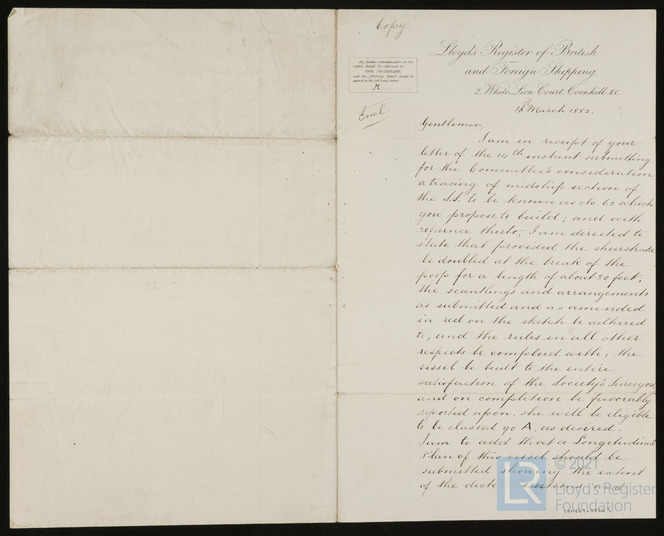 Copy
Any further communication on this
subject should be addressed to
THE SECRETARY,
and the following Initial should be
quoted in the left hand corner.
M
Encl.
Lloyd's Register of British
and Foreign Shipping.
2, White Lion Court, Cornhill, E.C.
18 March 1882.
Gentlemen,
I am in receipt of your
letter of the 14th instant submitting
for the Committee's consideration
a tracing of midship section of
the S.S. to be known as No. 62 which
you propose to build; and with
reference thereto, I am directed to
state that provided the sheerstrake
be doubled at the break of the
poop for a length of about 20 feet,
the scantlings and arrangements
as submitted and as amended
in red on the sketch be adhered
to, and the rules in all other
respects be complied with, the
vessel be built to the entire
satisfaction of the Society's Surveyors
and on completion be favorably
reported upon, she will be eligible
to be classed 90 A, as desired.
I am to add that a Longitudinal
Plan of this vessel should be
submitted showing the extent
of the deck erections and
© 2021
LR
Lloyd's Register
Foundation